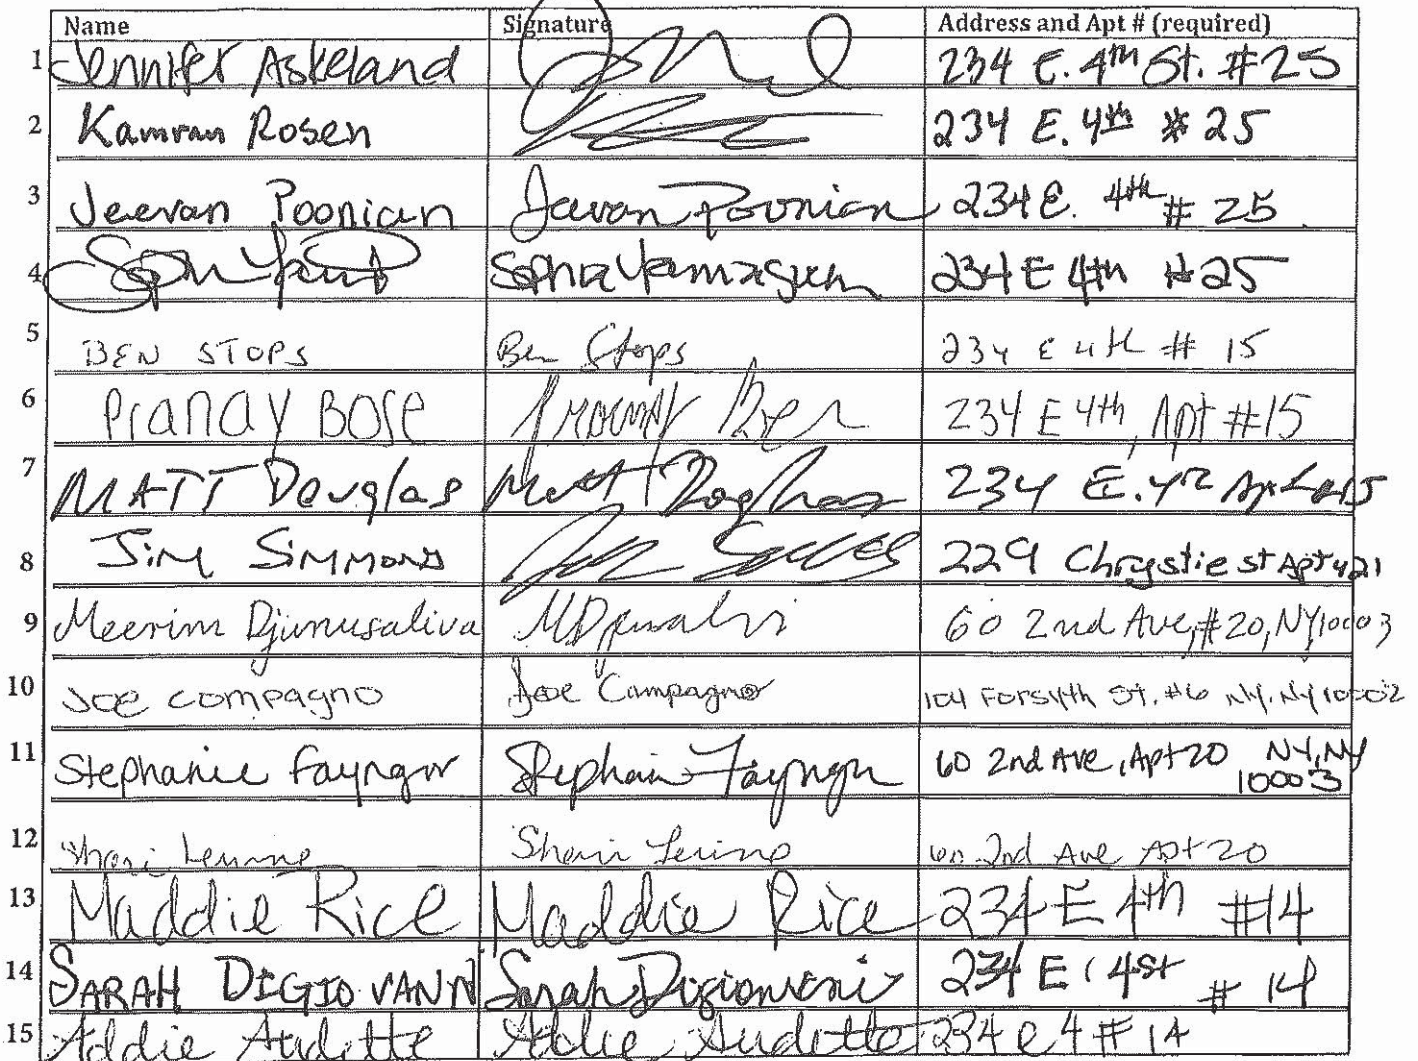 Name Signature Address and Apt # (required)
1 Jennifer Askeland 234 E. 4th St. #25
2 Kamran Rosen 234 E. 4th # 25
3 Jeevan Poonian Jeevan Poonian 234 E. 4th # 25
4 Sophia Yamaguchi 234 E 4th #25
5 BEN STOPS Ben Stops 234 E 4th # 15
6 Pranay Bose 234 E 4th, Apt #15
7 MATT Douglas Matt Douglas 234 E. 4th Apt 15
8 Jim Simmons 229 Chrystie st Apt 421
9 Meerim Djunusalieva 60 2nd Ave, #20, NY 10003
10 Joe Compagno Joe Compagno 104 Forsyth St. #6 NY, NY 10002
11 Stephanie Fayngor Stephanie Fayngor 60 2nd Ave, Apt 20 NY, NY
10003
12 Shari Levine Shari Levine 60 2nd Ave Apt 20
13 Maddie Rice Maddie Rice 234 E 4th #14
14 SARAH DIGIOVANNI Sarah Digiovanni 234 E 4st # 14
15 Addie Audette Addie Audette 234 e 4 # 14